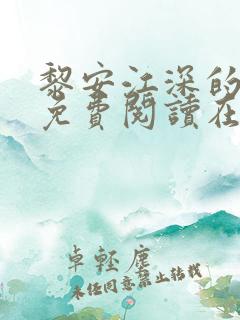 黎安江深的
免費閱讀在
卓輕塵
未经同意禁止转载